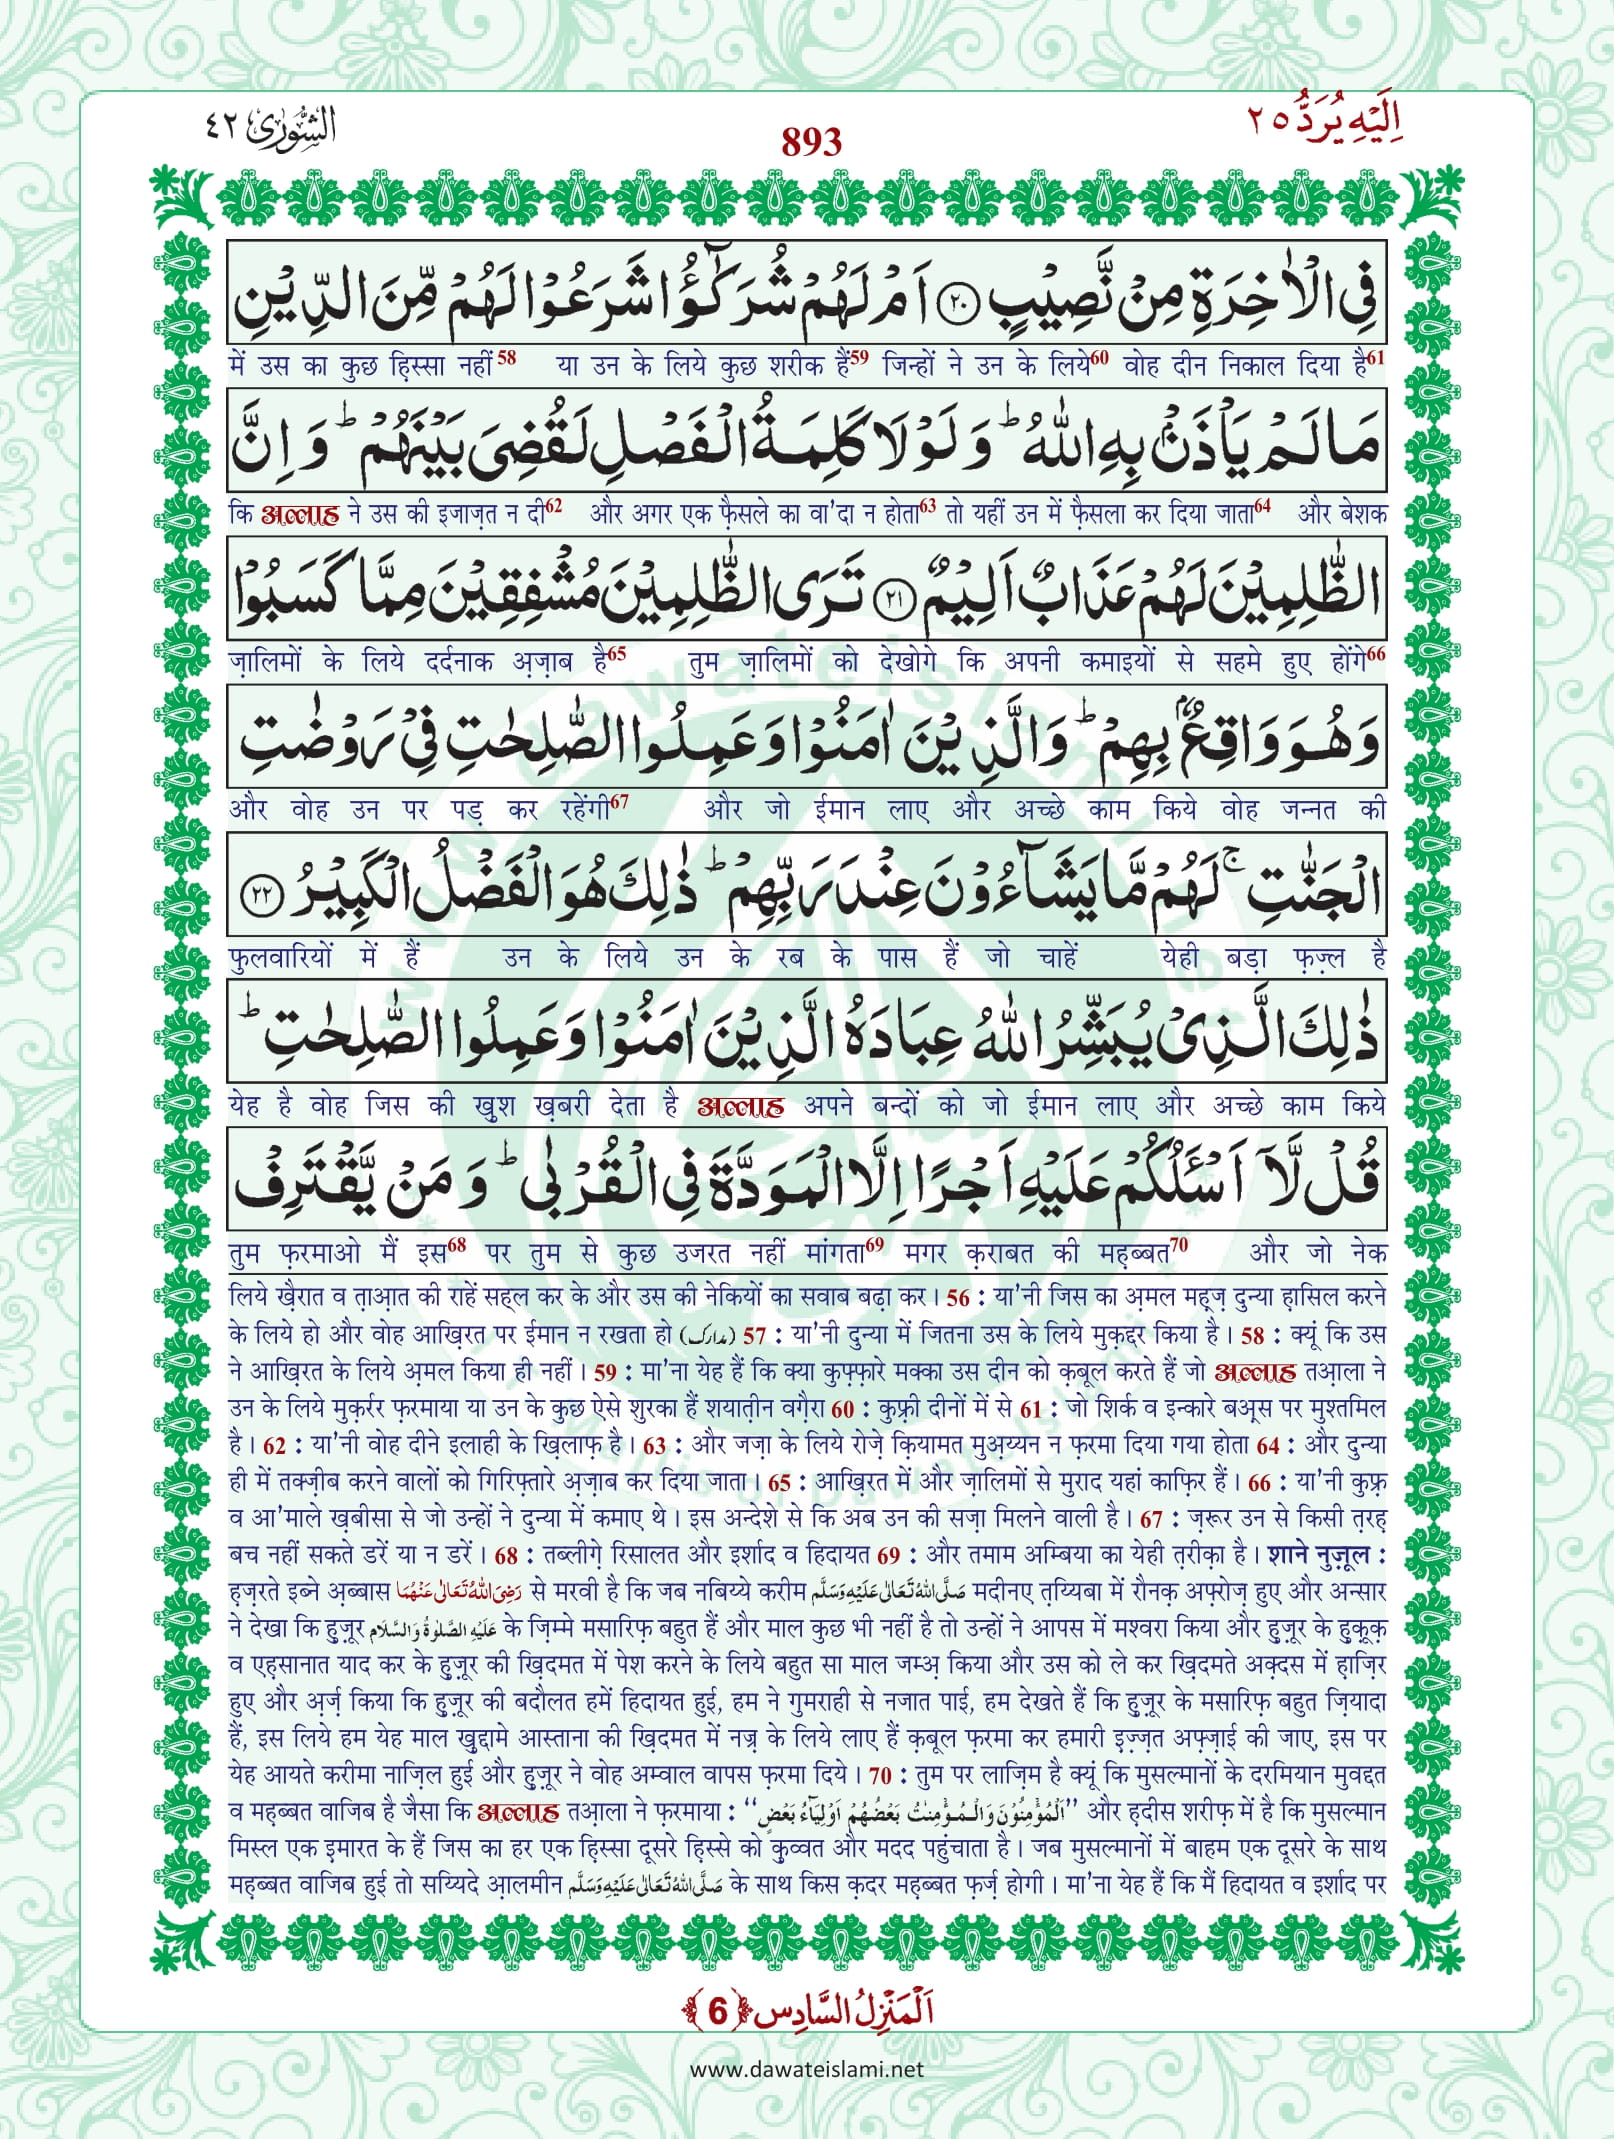 الشُّوْرٰى ٤٢
893
اِلَیْهِ یُرَدُّ ٢٥
فِی الْاٰخِرَةِ مِنْ نَّصِیْبٍ ﴿۲۰﴾ اَمْ لَهُمْ شُرَكٰٓؤُا شَرَعُوْا لَهُمْ مِّنَ الدِّیْنِ
में उस का कुछ हि़स्सा नहीं58 या उन के लिये कुछ शरीक हैं59 जिन्हों ने उन के लिये60 वोह दीन निकाल दिया है61
مَا لَمْ یَاْذَنْۢ بِهِ اللّٰهُ ؕ وَ لَوْ لَا كَلِمَةُ الْفَصْلِ لَقُضِیَ بَیْنَهُمْ ؕ وَ اِنَّ
कि अल्लाह ने उस की इजाज़त न दी62 और अगर एक फ़ैसले का वा'दा न होता63 तो यहीं उन में फ़ैसला कर दिया जाता64 और बेशक
الظّٰلِمِیْنَ لَهُمْ عَذَابٌ اَلِیْمٌ ﴿۲۱﴾ تَرَى الظّٰلِمِیْنَ مُشْفِقِیْنَ مِمَّا كَسَبُوْا
ज़ालिमों के लिये दर्दनाक अ़ज़ाब है65 तुम ज़ालिमों को देखोगे कि अपनी कमाइयों से सहमे हुए होंगे66
وَ هُوَ وَاقِعٌۢ بِهِمْ ؕ وَ الَّذِیْنَ اٰمَنُوْا وَ عَمِلُوا الصّٰلِحٰتِ فِیْ رَوْضٰتِ
और वोह उन पर पड़ कर रहेंगी67 और जो ईमान लाए और अच्छे काम किये वोह जन्नत की
الْجَنّٰتِ ۚ لَهُمْ مَّا یَشَآءُوْنَ عِنْدَ رَبِّهِمْ ؕ ذٰلِكَ هُوَ الْفَضْلُ الْكَبِیْرُ ﴿۲۲﴾
फुलवारियों में हैं उन के लिये उन के रब के पास हैं जो चाहें येही बड़ा फ़ज़्ल है
ذٰلِكَ الَّذِیْ یُبَشِّرُ اللّٰهُ عِبَادَهُ الَّذِیْنَ اٰمَنُوْا وَ عَمِلُوا الصّٰلِحٰتِ ؕ
येह है वोह जिस की खु़श ख़बरी देता है अल्लाह अपने बन्दों को जो ईमान लाए और अच्छे काम किये
قُلْ لَّاۤ اَسْـَٔلُكُمْ عَلَیْهِ اَجْرًا اِلَّا الْمَوَدَّةَ فِی الْقُرْبٰى ؕ وَ مَنْ یَّقْتَرِفْ
तुम फ़रमाओ मैं इस68 पर तुम से कुछ उजरत नहीं मांगता69 मगर क़राबत की मह़ब्बत70 और जो नेक
लिये ख़ैरात व त़ाआ़त की राहें सह्ल कर के और उस की नेकियों का सवाब बढ़ा कर। 56 : या'नी जिस का अ़मल मह़्ज़ दुन्या ह़ासिल करने
के लिये हो और वोह आख़िरत पर ईमान न रखता हो (مدارک) 57 : या'नी दुन्या में जितना उस के लिये मुक़द्दर किया है। 58 : क्यूं कि उस
ने आख़िरत के लिये अ़मल किया ही नहीं। 59 : मा'ना येह हैं कि क्या कुफ़्फ़ारे मक्का उस दीन को क़बूल करते हैं जो अल्लाह तआ़ला ने
उन के लिये मुक़र्रर फ़रमाया या उन के कुछ ऐसे शुरका हैं शयात़ीन वगै़रा 60 : कुफ़्री दीनों में से 61 : जो शिर्क व इन्कारे बअ़्स पर मुश्तमिल
है। 62 : या'नी वोह दीने इलाही के ख़िलाफ़ है। 63 : और जज़ा के लिये रोज़े क़ियामत मुअ़य्यन न फ़रमा दिया गया होता 64 : और दुन्या
ही में तक्ज़ीब करने वालों को गिरिफ़्तारे अ़ज़ाब कर दिया जाता। 65 : आख़िरत में और ज़ालिमों से मुराद यहां काफ़िर हैं। 66 : या'नी कुफ़्र
व आ'माले ख़बीसा से जो उन्हों ने दुन्या में कमाए थे। इस अन्देशे से कि अब उन की सज़ा मिलने वाली है। 67 : ज़रूर उन से किसी त़रह़
बच नहीं सकते डरें या न डरें। 68 : तब्लीगे़ रिसालत और इर्शाद व हिदायत 69 : और तमाम अम्बिया का येही त़रीक़ा है। शाने नुज़ूल :
ह़ज़रते इब्ने अ़ब्बास رَضِیَ اللّٰهُ تَعَالٰی عَنْهُمَا से मरवी है कि जब नबिय्ये करीम صَلَّی اللّٰهُ تَعَالٰی عَلَیْهِ وَسَلَّم मदीनए त़य्यिबा में रौनक़ अफ़्रोज़ हुए और अन्सार
ने देखा कि हु़ज़ूर عَلَیْهِ الصَّلٰوةُ وَالسَّلَام के ज़िम्मे मसारिफ़ बहुत हैं और माल कुछ भी नहीं है तो उन्हों ने आपस में मश्वरा किया और हु़ज़ूर के हु़क़ूक़
व एह़सानात याद कर के हु़ज़ूर की ख़िदमत में पेश करने के लिये बहुत सा माल जम्अ़ किया और उस को ले कर ख़िदमते अक़्दस में ह़ाज़िर
हुए और अ़र्ज़ किया कि हु़ज़ूर की बदौलत हमें हिदायत हुई, हम ने गुमराही से नजात पाई, हम देखते हैं कि हु़ज़ूर के मसारिफ़ बहुत ज़ियादा
हैं, इस लिये हम येह माल खु़द्दामे आस्ताना की ख़िदमत में नज़्र के लिये लाए हैं क़बूल फ़रमा कर हमारी इ़ज़्ज़त अफ़्ज़ाई की जाए, इस पर
येह आयते करीमा नाज़िल हुई और हु़ज़ूर ने वोह अम्वाल वापस फ़रमा दिये। 70 : तुम पर लाज़िम है क्यूं कि मुसल्मानों के दरमियान मुवद्दत
व मह़ब्बत वाजिब है जैसा कि अल्लाह तआ़ला ने फ़रमाया : “اَلْمُؤْمِنُوْنَ وَالْمُؤْمِنٰتُ بَعْضُهُمْ اَوْلِیَآءُ بَعْضٍ” और ह़दीस शरीफ़ में है कि मुसल्मान
मिस्ल एक इमारत के हैं जिस का हर एक हि़स्सा दूसरे हि़स्से को कु़व्वत और मदद पहुंचाता है। जब मुसल्मानों में बाहम एक दूसरे के साथ
मह़ब्बत वाजिब हुई तो सय्यिदे आ़लमीन صَلَّی اللّٰهُ تَعَالٰی عَلَیْهِ وَسَلَّم के साथ किस क़दर मह़ब्बत फ़र्ज़ होगी। मा'ना येह हैं कि मैं हिदायत व इर्शाद पर
اَلْمَنْزِلُ السَّادِس ﴿6﴾
www.dawateislami.net